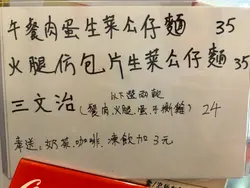 午餐肉蛋生菜公仔麵 35
火腿仿包片生菜公仔麵 35
以下選兩款
三文治 (餐肉、火腿、蛋、手撕雞) 24
奉送:奶茶.咖啡.凍飲加3元